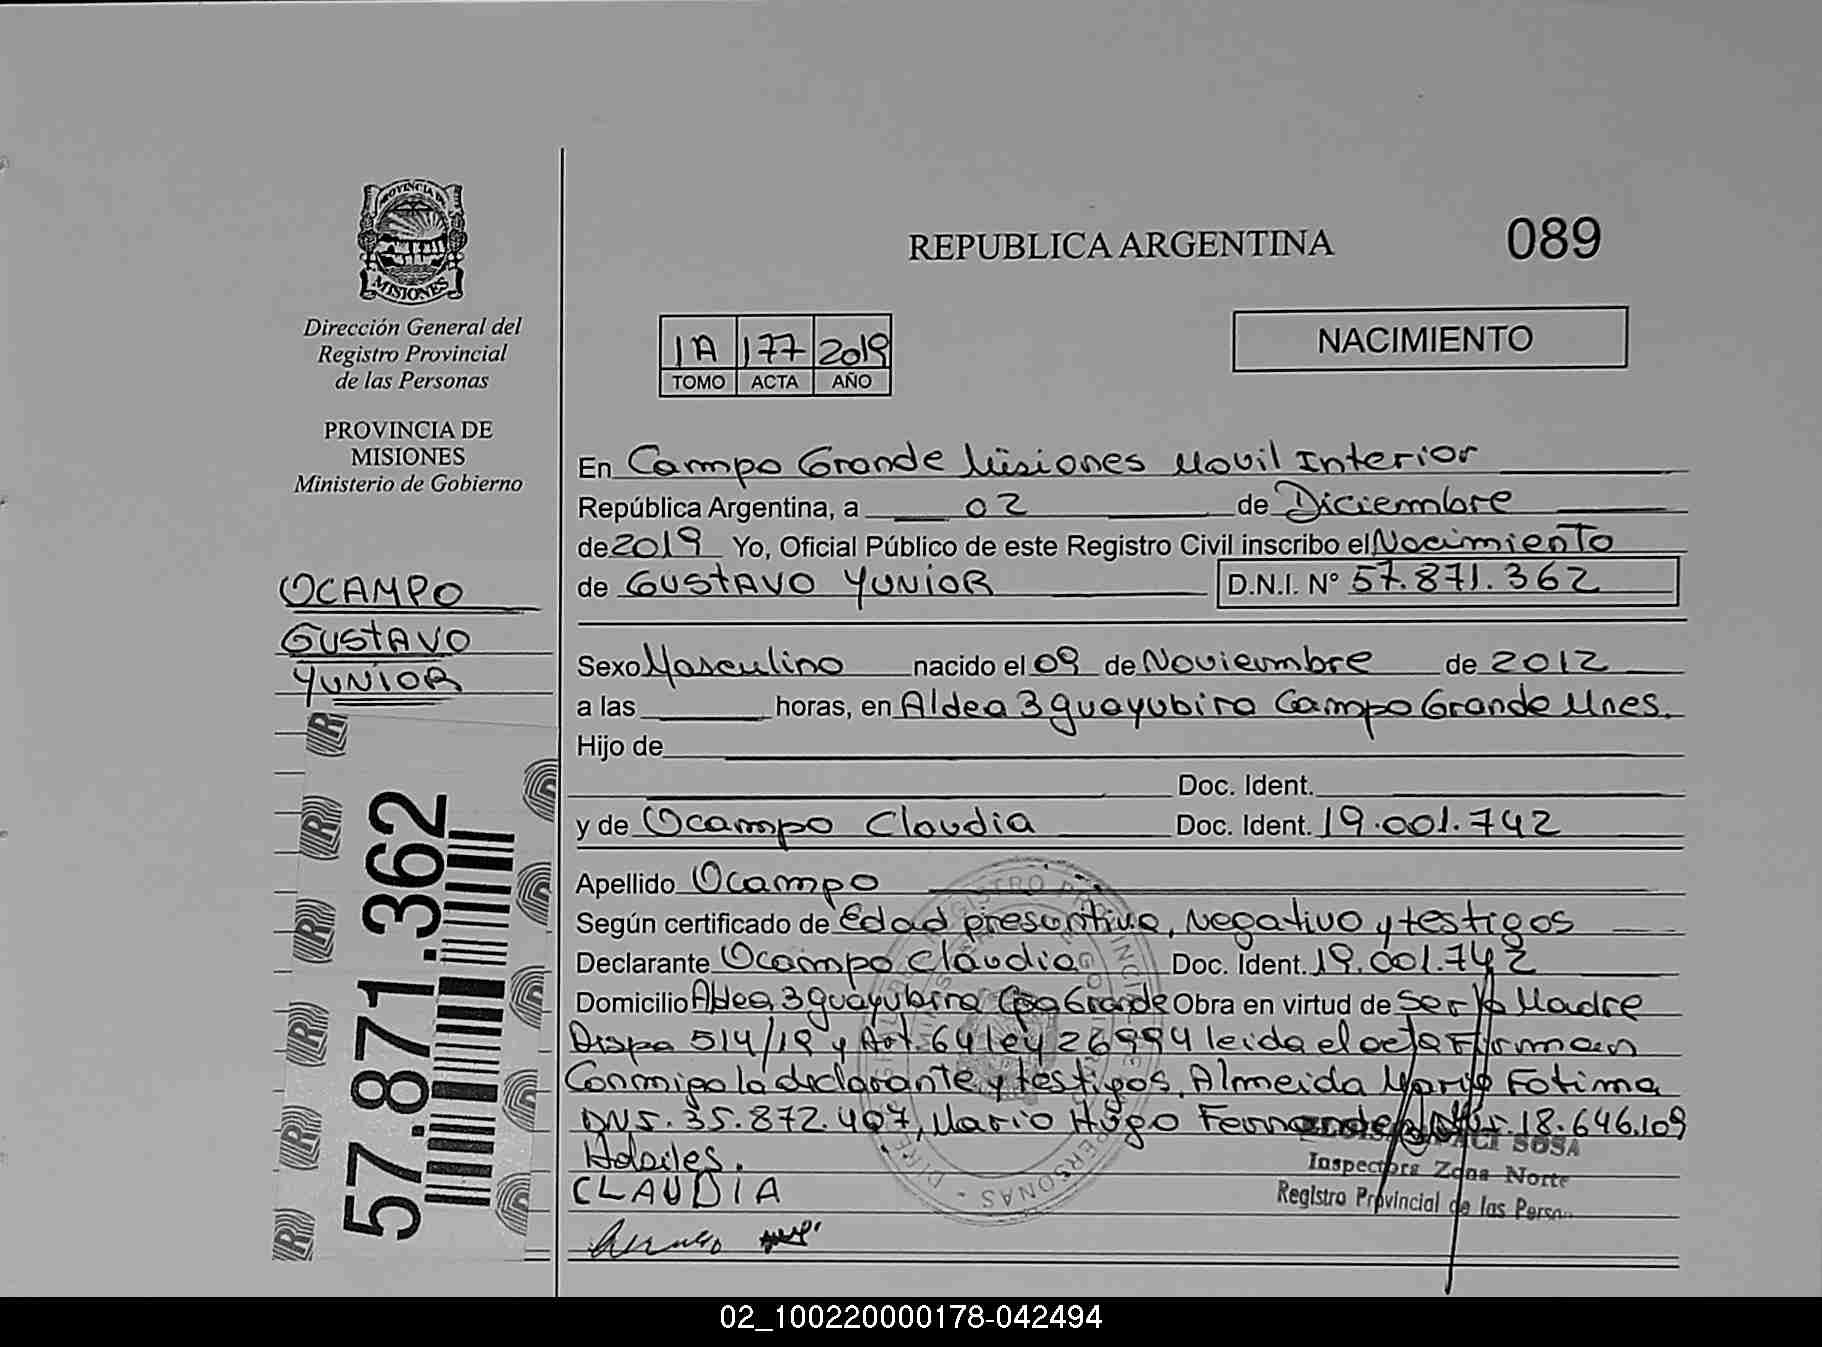 PROVINCIA DE
MISIONES
Dirección General del
Registro Provincial
de las Personas
PROVINCIA DE
MISIONES
Ministerio de Gobierno
OCAMPO
GUSTAVO
YUNIOR
57.871.362
REPUBLICA ARGENTINA
089
1A 177 2019
TOMO ACTA AÑO
NACIMIENTO
En Campo Grande Misiones Movil Interior
República Argentina, a 02 de Diciembre
de 2019 Yo, Oficial Público de este Registro Civil inscribo el Nacimiento
de GUSTAVO YUNIOR D.N.I. N° 57.871.362
Sexo Masculino nacido el 09 de Noviembre de 2012
a las horas, en Aldea 3 guayubira Campo Grande Mnes.
Hijo de
Doc. Ident.
y de Ocampo Claudia Doc. Ident. 19.001.742
Apellido Ocampo
Según certificado de Edad presuntiva, Negativo y testigos
Declarante Ocampo Claudia Doc. Ident. 19.001.742
Domicilio Aldea 3 guayubira Cpo Grande Obra en virtud de Ser la Madre
Dispo 514/19 y Art. 64 ley 26994 leida el acta Firman
Conmigo la declarante y testigos, Almeida Maria Fatima
DNI. 35.872.407, Mario Hugo Fernandez 18.646.109
Habiles.
CLAUDIA
SOSA
Inspectora Zona Norte
Registro Provincial de las Person
02_100220000178-042494